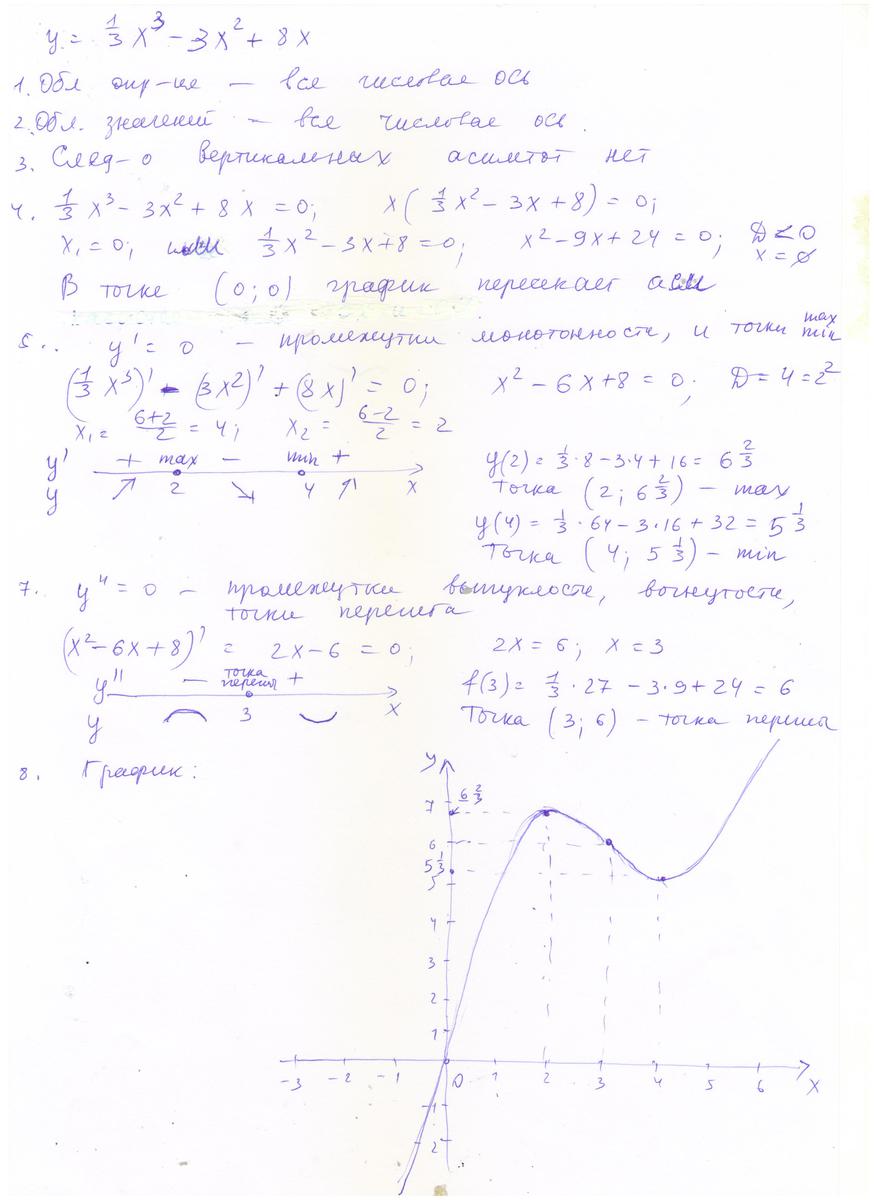 y = 1/3 x³ − 3x² + 8x
1. Обл опр-ия — вся числовая ось
2. Обл. значений — вся числовая ось.
3. След-о вертикальных асимтот нет
4. 1/3 x³ − 3x² + 8x = 0; x(1/3 x² − 3x + 8) = 0;
x₁ = 0; или 1/3 x² − 3x + 8 = 0; x² − 9x + 24 = 0; D < 0
x = ∅
В точке (0; 0) график пересекает оси
5.. y' = 0 — промежутки монотонности, и точки max min
(1/3 x³)' − (3x²)' + (8x)' = 0; x² − 6x + 8 = 0; D = 4 = 2²
x₁ = (6+2)/2 = 4; x₂ = (6−2)/2 = 2
y' + max − min +
y ↗ 2 ↘ 4 ↗ x
y(2) = 1/3 · 8 − 3·4 + 16 = 6 2/3
Точка (2; 6 2/3) — max
y(4) = 1/3 · 64 − 3·16 + 32 = 5 1/3
Точка (4; 5 1/3) — min
7. y'' = 0 — промежутки выпуклости, вогнутости,
точки перегиба
(x² − 6x + 8)' = 2x − 6 = 0; 2x = 6; x = 3
y'' — точка +
y 3 x
f(3) = 1/3 · 27 − 3·9 + 24 = 6
Точка (3; 6) — точка
8. График:
y
7 6 2/3
6
5 1/3
5
4
3
2
1
-3 -2 -1 0 1 2 3 4 5 6 x
-1
2